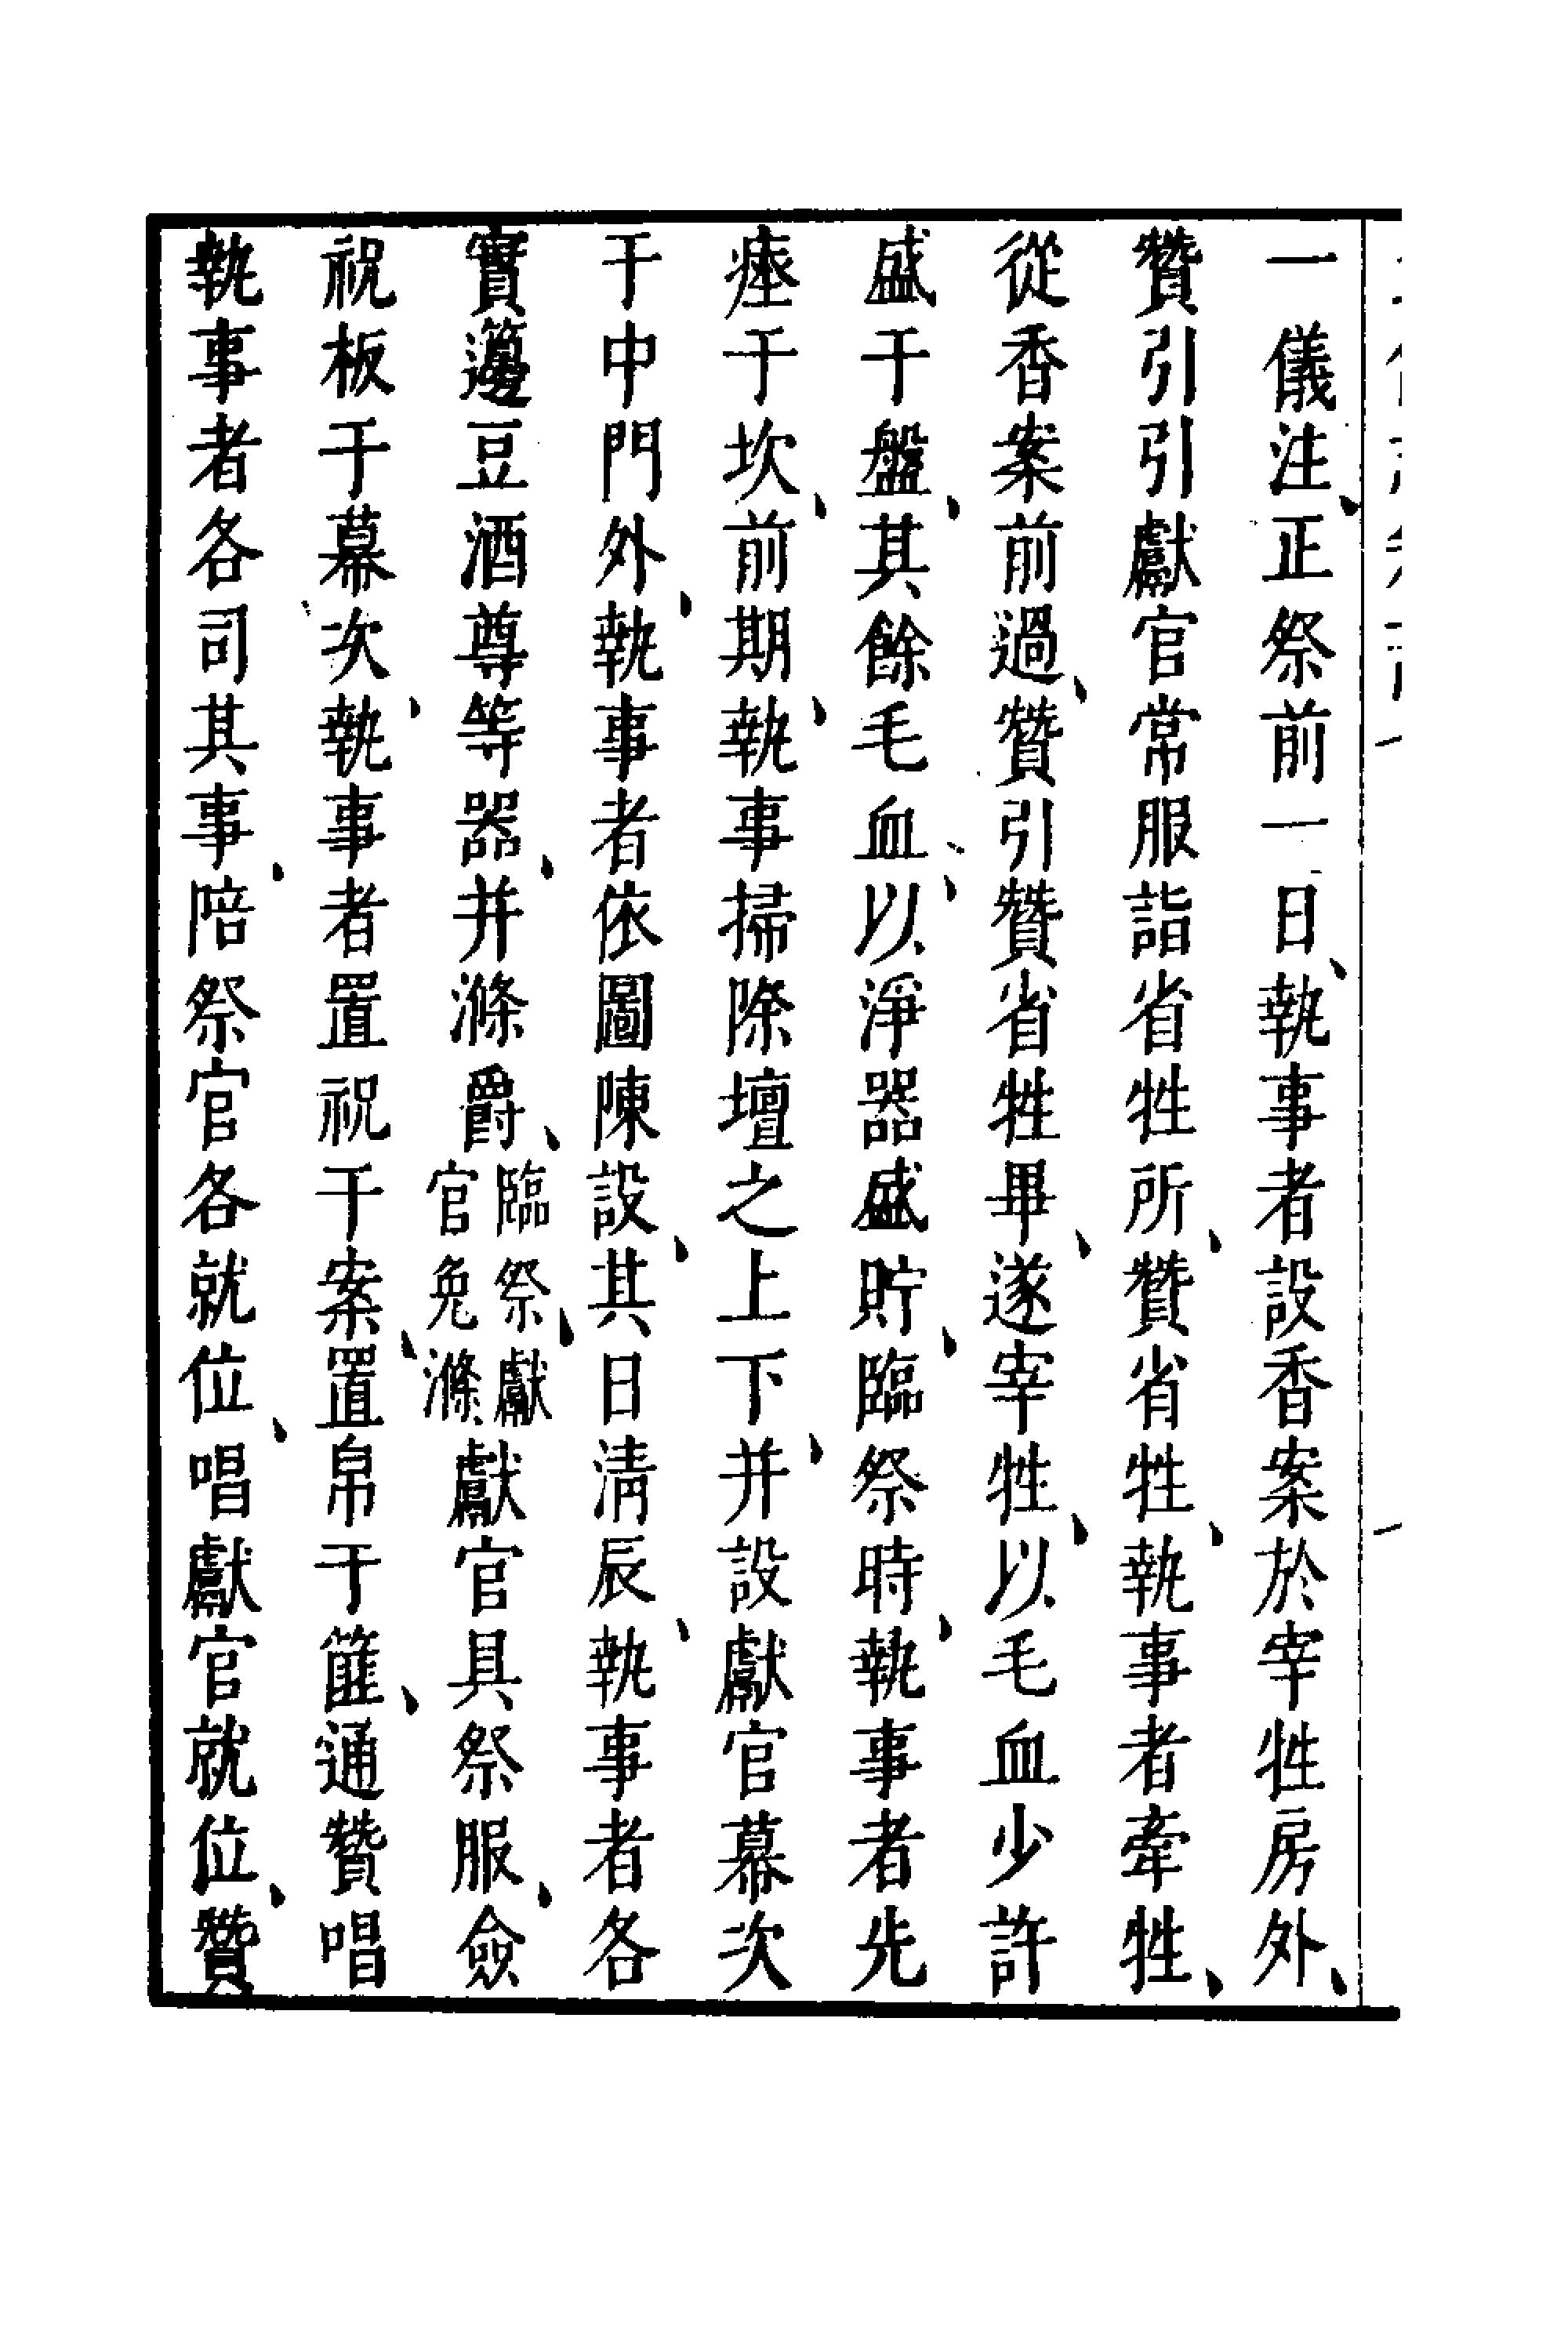 一儀注、正祭前一日、執事者設香案於宰牲房外、
贊引引獻官常服詣省牲所、贊省牲、執事者牽牲、
從香案前過、贊引贊省牲畢、遂宰牲、以毛血少許
盛于盤、其餘毛血、以淨器盛貯、臨祭時、執事者先
瘞于坎、前期、執事掃除壇之上下、并設獻官幕次
于中門外、執事者依圖陳設、其日淸辰、執事者各
實籩豆酒尊等器、并滌爵、臨祭、獻官免滌獻官具祭服、僉
祝板于幕次、執事者置祝于案、置帛于篚、通贊唱
執事者各司其事、陪祭官各就位、唱獻官就位、贊